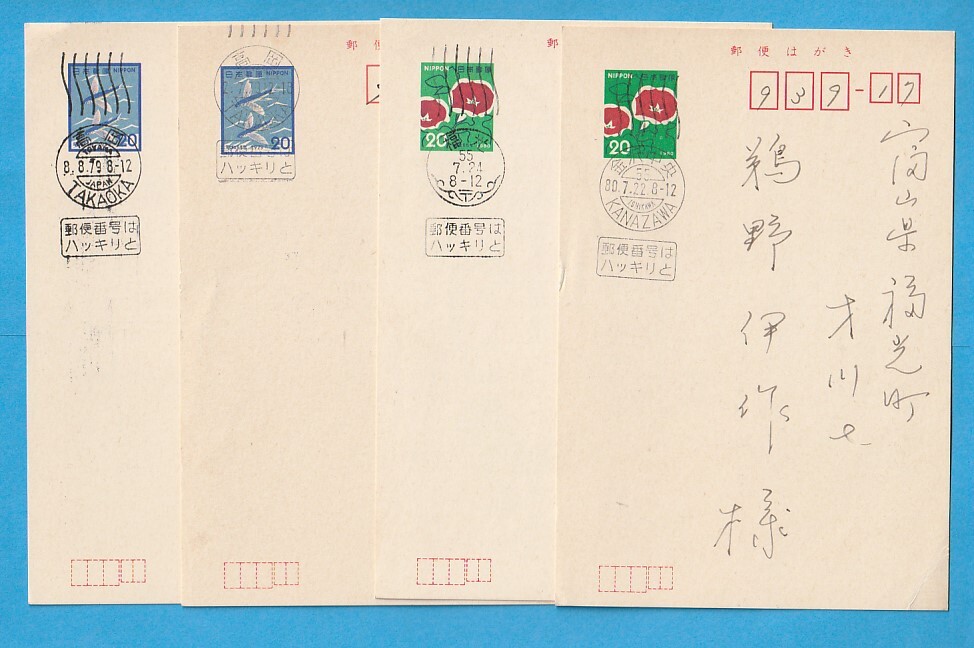 日本郵便 NIPPON
20
TAKAOKA
8.8.79 8-12
JAPAN
TAKAOKA
郵便番号は
ハッキリと
郵便
日本郵便 NIPPON
20
郵便番号は
ハッキリと
郵
NIPPON 日本郵便
20
55
7.24
8-12
郵便番号は
ハッキリと
郵便はがき
939-17
NIPPON 日本郵便
20
55
80.7.22 8-12
ISHIKAWA
KANAZAWA
郵便番号は
ハッキリと
富山県福光町
才川七
鵜野伊作様